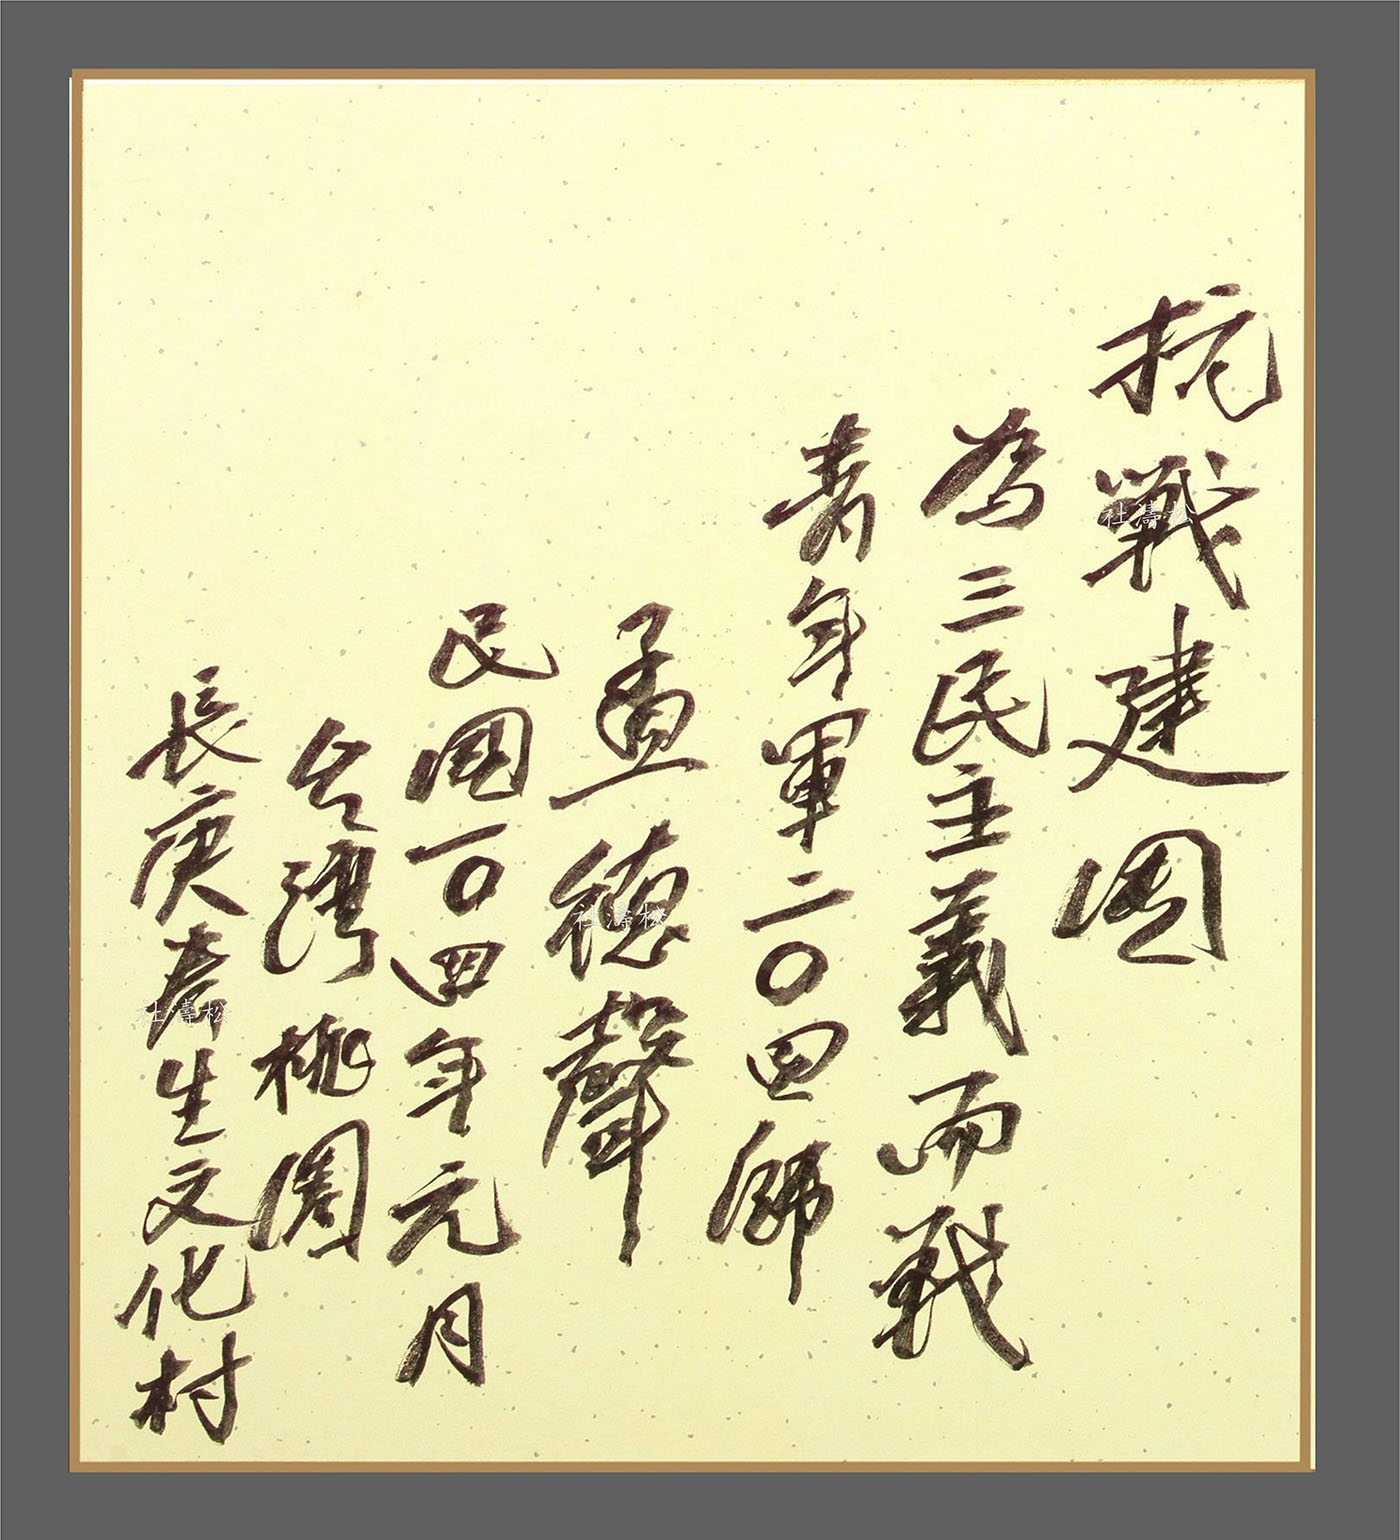 抗戰建國
為三民主義而戰
青年軍二〇四師
孟德聲
民國一〇四年元月
台灣桃園
長庚養生文化村
杜濤松
杜濤松
杜濤松